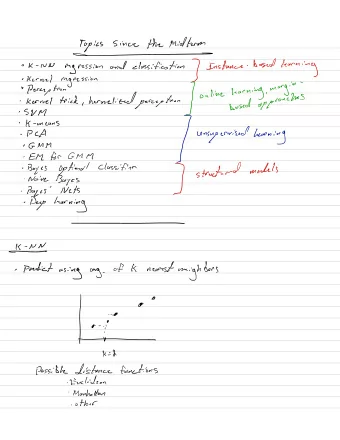 Topics Since the Midterm
· K-NN regression and classification
Instance-based learning
· Kernel regression
· Perceptron
online learning, margin-
based approaches
· Kernel trick, kernelized perceptron
· SVM
· K-means
· PCA
unsupervised learning
· GMM
· EM for GMM
· Bayes optimal classifier
structured models
· Naive Bayes
· Bayes' Nets
· Deep learning
K-NN
· Predict using avg. of K nearest neighbors
Possible distance functions
· Euclidean
· Manhattan
· other